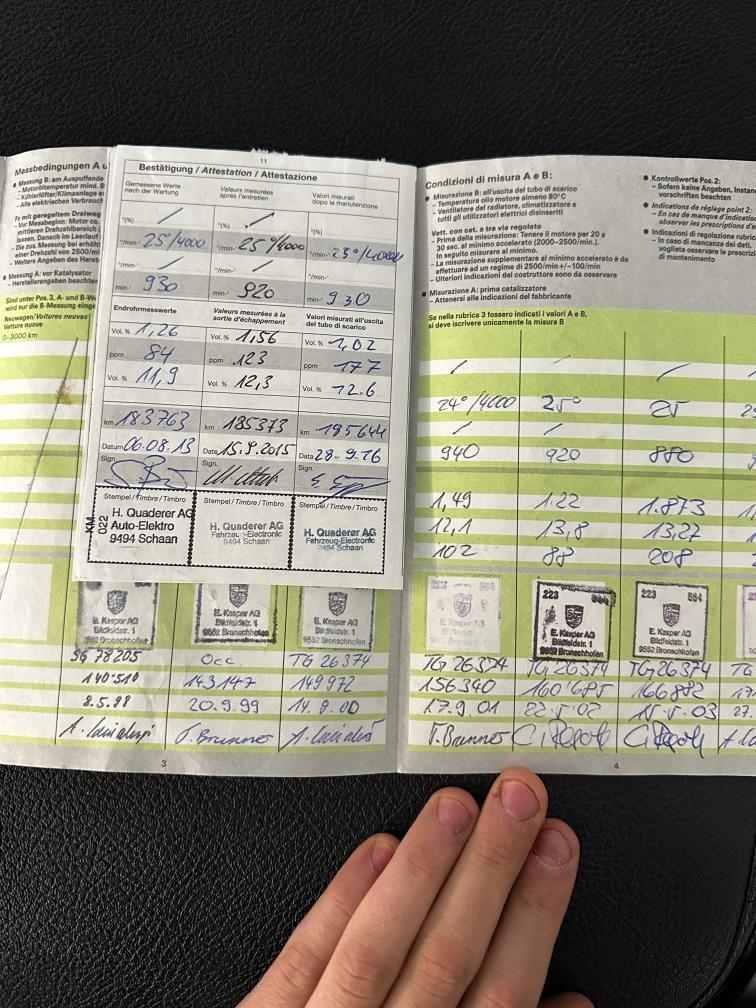 Messbedingungen A u
Messung B: am Auspuffende
- Motoröltemperatur mind.
- Kühlerlüfter/Klimaanlage
- Alle elektrischen Verbrauc
- Vor Messbeginn: Motor
mittleren Drehzahlbereich
lassen. Danach im Leerlauf
Die zus. Messung bei erhöh
einer Drehzahl von 2500/mi
- Weitere Angaben des Herst
Messung A: vor Katalysator
- Herstellerangaben beachten
Sind unter Pos. 3, A- und B-W
wird nur die B-Messung einge
Neuwagen/Voitures neuves
Vetture nuove
0–3000 km
11
Bestätigung / Attestation / Attestazione
Gemessene Werte
nach der Wartung
Valeurs mesurées
après l'entretien
Valori misurati
dopo la manutenzione
°(%) / °(%) / °(%)
°/min-¹ 25°/4000 °/min-¹ 25°/4000 °/min-¹
°/min-¹ / °/min-¹ / °/min-¹
min-¹ 930 min-¹ 920 min-¹ 930
Endrohrmesswerte
Valeurs mesurées à la
sortie d'échappement
Valori misurati all'uscita
del tubo di scarico
Vol. % 1,26 Vol. % 1,56 Vol. % 1,02
ppm 84 ppm 123 ppm 177
Vol. % 11,9 Vol. % 12,3 Vol. % 12.6
km 183763 km 185373 km 195644
Datum 06.08.13 Date 15.9.2015 Data 28-9.16
Sign. Sign. Sign.
Stempel / Timbre / Timbro Stempel / Timbre / Timbro Stempel / Timbre / Timbro
KM
022
H. Quaderer AG
Auto-Elektro
9494 Schaan
H. Quaderer AG
Fahrzeug-Electronic
9494 Schaan
H. Quaderer AG
Fahrzeug-Electronic
9494 Schaan
E. Kasper AG
Bildfeldstr. 1
9552 Bronschhofen
E. Kasper AG
Bildfeldstr. 1
9552 Bronschhofen
E. Kasper AG
Bildfeldstr. 1
9552 Bronschhofen
SG 78205 Occ TG 26374
140'510 143147 149972
8.5.98 20.9.99 14.8.00
3
Condizioni di misura A e B:
Misurazione B: all'uscita del tubo di scarico
- Temperatura olio motore almeno 80°C
- Ventilatore del radiatore, climatizzatore e
tutti gli utilizzatori elettrici disinseriti
Vett. con cat. a tre vie regolato
- Prima della misurazione: Tenere il motore per 20 a
30 sec. al minimo accelerato (2000–2500/min.).
In seguito misurare al minimo.
- La misurazione supplementare al minimo accelerato è da
effettuare ad un regime di 2500/min +/–100/min
- Ulteriori indicazioni del costruttore sono da osservare
Misurazione A: prima catalizzatore
- Attenersi alle indicazioni del fabbricante
Se nella rubrica 3 fossero indicati i valori A e B,
si deve iscrivere unicamente la misura B
Kontrollwerte Pos. 2:
- Sofern keine Angaben, Instand
vorschriften beachten
Indications de réglage point 2:
- En cas de manque d'indicatio
observer les prescriptions d'e
Indicazioni di regolazione rubric
- In caso di mancanza dei dati,
vogliate osservare le prescriz
di manutenzione
/ / /
24°/4000 25° 25
/ /
940 920 880
1,49 1.22 1.873
12,1 13,8 13,27
102 88 208
E. Kasper AG
Bildfeldstr. 1
9552 Bronschhofen
223
E. Kasper AG
Bildfeldstr. 1
9552 Bronschhofen
223 564
E. Kasper AG
Bildfeldstr. 1
9552 Bronschhofen
TG 26374 TG 26374 TG 26374
156340 160'685 166882
17.9.01 22.5.02 15.5.03
4